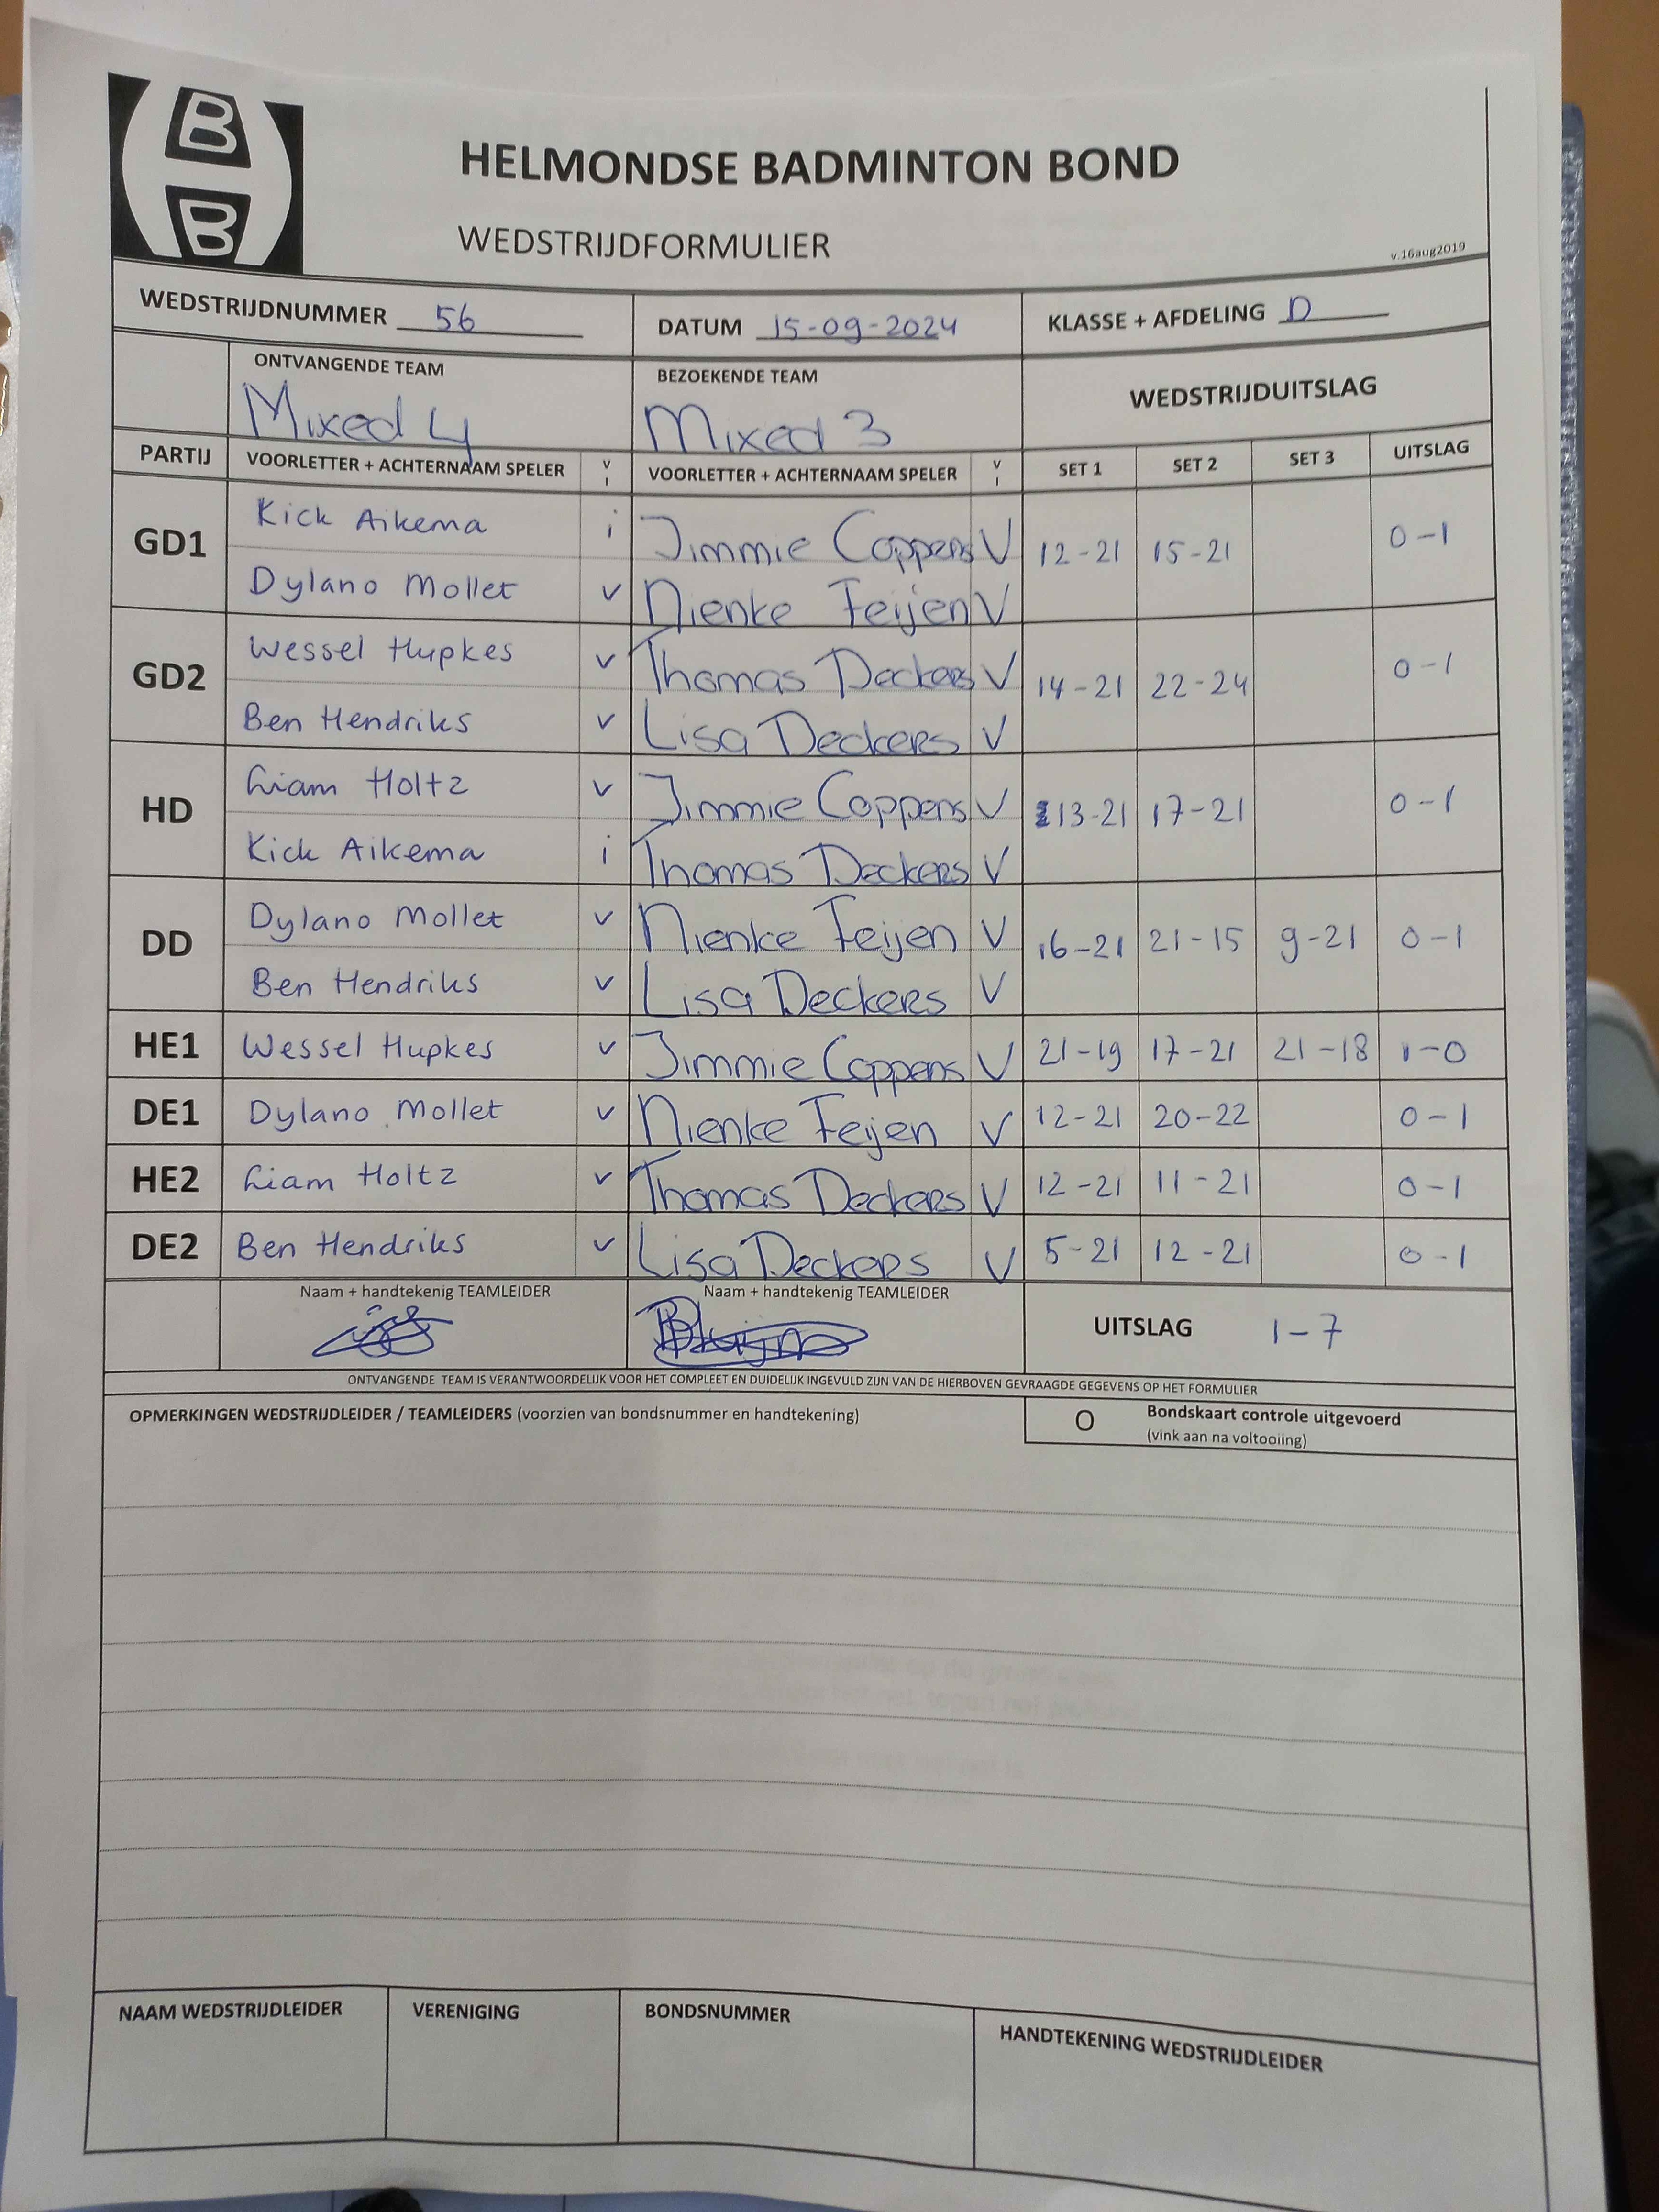 B
B
HELMONDSE BADMINTON BOND
WEDSTRIJDFORMULIER
v.16aug2019
WEDSTRIJDNUMMER 56 DATUM 15-09-2024 KLASSE + AFDELING D
ONTVANGENDE TEAM BEZOEKENDE TEAM WEDSTRIJDUITSLAG
Mixed 4 Mixed 3
PARTIJ VOORLETTER + ACHTERNAAM SPELER V I VOORLETTER + ACHTERNAAM SPELER V I SET 1 SET 2 SET 3 UITSLAG
GD1 Kick Aikema i Jimmie Coppens V 12-21 15-21 0-1
Dylano Mollet v Nienke Feijen V
GD2 Wessel Hupkes v Thomas Deckers V 14-21 22-24 0-1
Ben Hendriks v Lisa Deckers V
HD Liam Holtz v Jimmie Coppens V 13-21 17-21 0-1
Kick Aikema i Thomas Deckers V
DD Dylano Mollet v Nienke Feijen V 16-21 21-15 9-21 0-1
Ben Hendriks v Lisa Deckers V
HE1 Wessel Hupkes v Jimmie Coppens V 21-19 17-21 21-18 1-0
DE1 Dylano Mollet v Nienke Feijen V 12-21 20-22 0-1
HE2 Liam Holtz v Thomas Deckers V 12-21 11-21 0-1
DE2 Ben Hendriks v Lisa Deckers V 5-21 12-21 0-1
Naam + handtekenig TEAMLEIDER Naam + handtekenig TEAMLEIDER UITSLAG 1-7
ONTVANGENDE TEAM IS VERANTWOORDELIJK VOOR HET COMPLEET EN DUIDELIJK INGEVULD ZIJN VAN DE HIERBOVEN GEVRAAGDE GEGEVENS OP HET FORMULIER
OPMERKINGEN WEDSTRIJDLEIDER / TEAMLEIDERS (voorzien van bondsnummer en handtekening) O Bondskaart controle uitgevoerd
(vink aan na voltooiing)
NAAM WEDSTRIJDLEIDER VERENIGING BONDSNUMMER HANDTEKENING WEDSTRIJDLEIDER